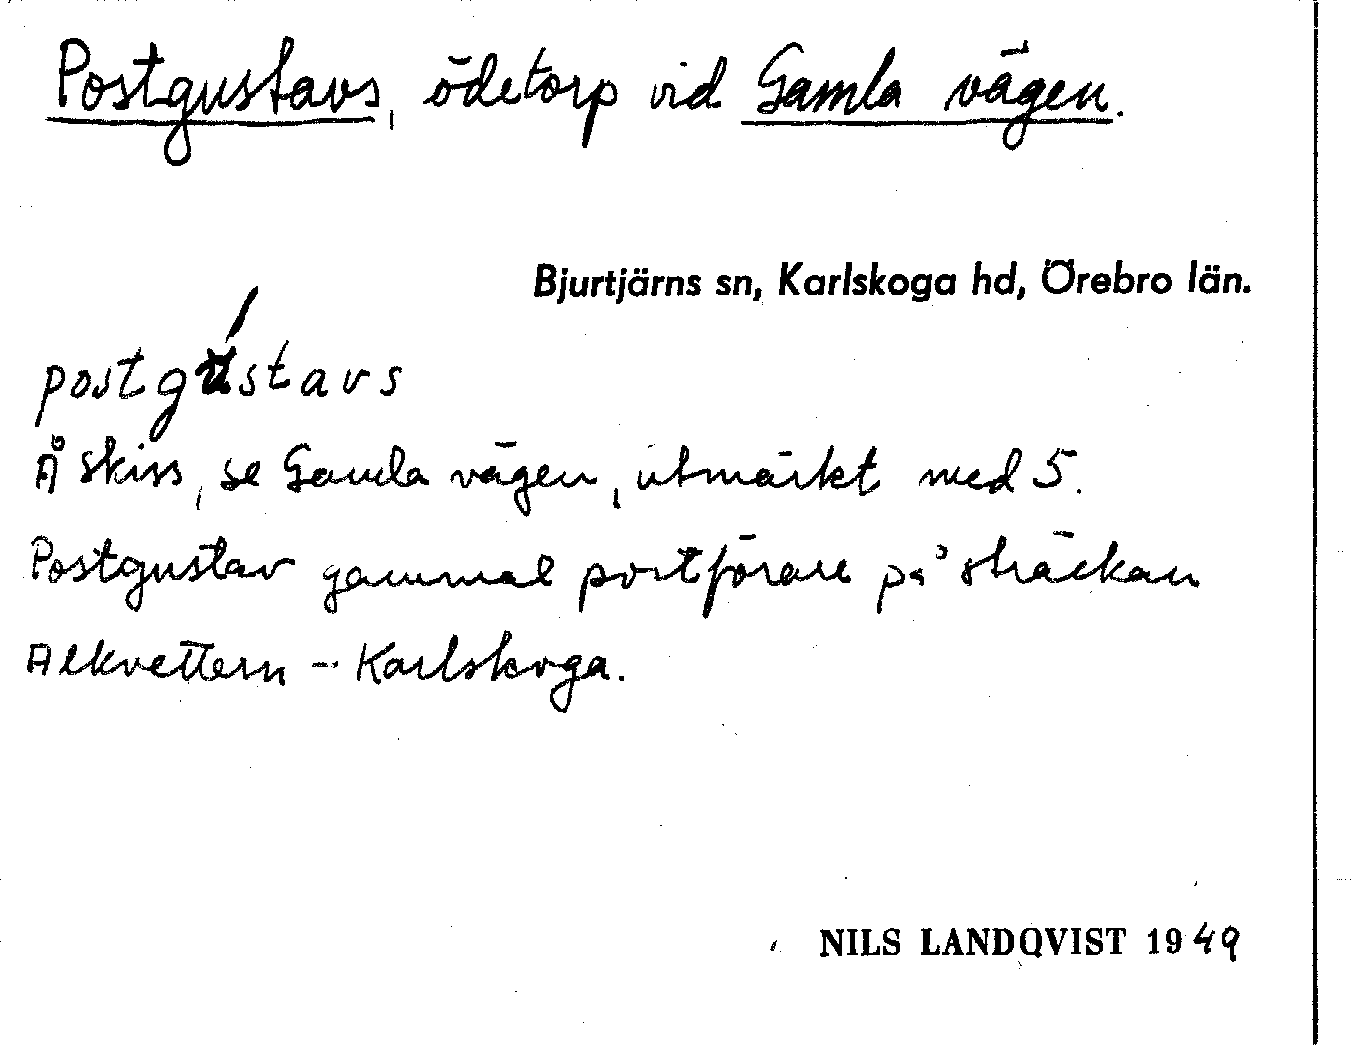 Postgustavs, ödetorp vid Gamla vägen.
Bjurtjärns sn, Karlskoga hd, Örebro län.
postgústavs
Å skiss, se Gamla vägen, utmärkt med 5.
Postgustav gammal postförare på sträckan
Alkvettern - Karlskoga.
NILS LANDQVIST 1949